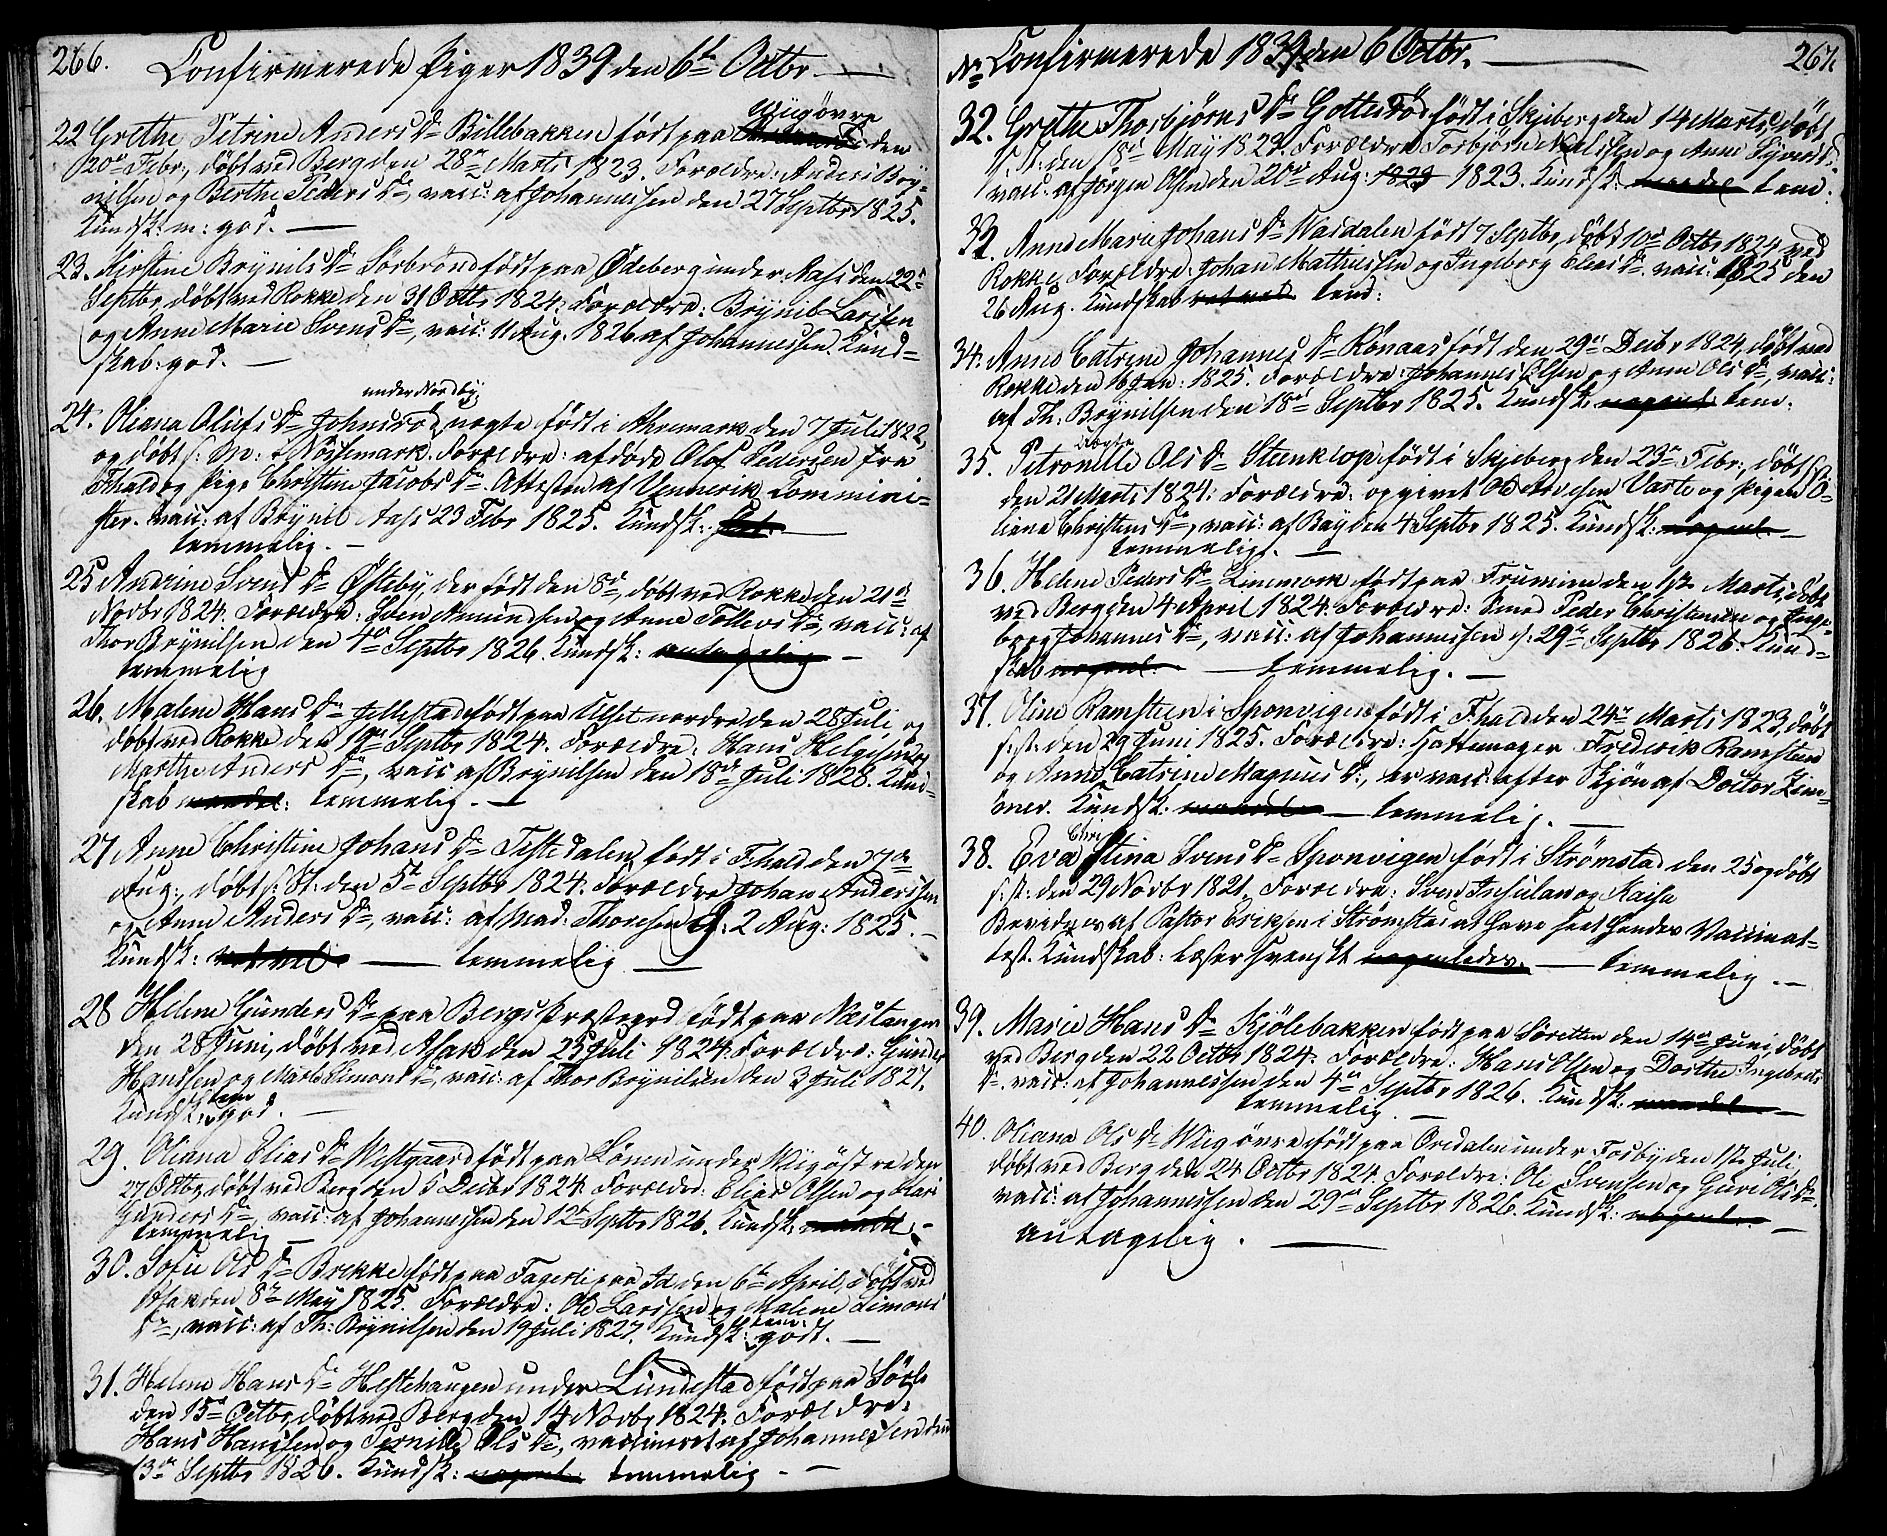 266.
Confirmerede Piger 1839 den 6t Octbr
22 Grethe Petrine Anders Dr Billebakken født paa Wiigøvre den
20de Febr, døbt ved Berg den 28de Marts 1823. Forældre: Anders Bry-
nilsen og Berthe Peders Dr, vacc: af Johannessen den 27 Septbr 1825.
Kundsk: m: god.
23. Kirstine Brynils Dr Sørbrøn født paa Ødeberg under Aase den 22de
Septbr, døbt ved Rokke den 31 Octbr 1824. Forældre: Brynil Larssen
og Anne Marie Svens Dr, vacc: 11 Aug. 1826 af Johannessen. Kund-
skab: god.
under Nordby
24. Oleana Olufs Dr Johnsrød, uægte født i Ahremark den 7 Juli 1822
og døbt s: M: i Nösemark. Forældre: afdøde Olof Pedersen fra
Fhald og Pige Christine Jacobs Dr. Attesten af Commini-
ster. vacc: af Brynil Aase 23 Febr 1825. Kundsk:
temmelig.
25 Andrine Svens Dr Østeby, der født den 8de, døbt ved Rokke den 21de
Novbr 1824. Forældre: Sven Amundsen og Anne Tollevs Dr, vacc: af
Thor Brynilsen den 4de Septbr 1826. Kundsk: antagelig
temmelig
26. Malene Hans Dr Jellestad født paa Ulset nordre den 28 Juli og
døbt ved Rokke den 19de Septbr 1824. Forældre: Hans Helgesen og
Marthe Anders Dr, vacc af Brynilsen den 18de Juli 1828. Kund-
skab maadel: temmelig.
27 Anne Christine Johans Dr Tistedalen, født i Fhald den 7de
Aug:, døbt s: St: den 5te Septbr 1824. Forældre Johan Anderssen
og Anne Anders Dr, vacc: af Mad: Thoresen d: 2 Aug: 1825.
Kundsk: temmelig
28 Helene Gunders Dr paa Bergs Præstegrd født paa Næstangen
den 28 Juni, døbt ved Asak den 25 Juli 1824. Forældre: Gunder
Hanssen og Marte Simons Dr, vacc: af Thor Brynilsen den 3 Juli 1827.
Kundsk: tem god.
29. Oleana Elias Dr Westgaard født paa Lønen under Wiig østre den
27 Octbr, døbt ved Berg den 5 Decbr 1824. Forældre: Elias Olsen og Kari
Gunders Dr, vacc: af Johannessen den 12te Septbr 1826. Kundsk:
temmelig
30. Sofie Ols Dr Brekke født paa Fagerli paa Id den 6te April, døbt ved
Asak den 8de May 1825. Forældre: Ole Larssen og Malene Simons
Dr, vacc: af Th: Brynilsen den 19 Juli 1827. Kundsk: tem: godt.
31. Helene Hans Dr Hestehaugen under Lundestad født paa Sørli
den 15de Octbr, døbt ved Berg den 14 Novbr 1824. Forældre:
Hans Hanssen og Pernille Ols Dr, vaccineret af Johannessen den
13de Septbr 1826. Kundsk: temmelig
No Confirmerede 1839 den 6 Octbr.
267.
32. Grethe Thorbjørns Dr Gotterød født i Skjeberg den 14 Marts, døbt
s: st: den 18de May 1823. Forældre Torbjørn Nielssen og Anne Syvers Dr
vacc: af Jørgen Olsen den 20de Aug: 1823 1823. Kundsk: maadel tem:
33. Anne Marie Johans Dr Wasdalen født 7 Septbr, døbt 10de Octbr 1824 ved
Rokke, Forældre: Johan Mathiessen og Ingeborg Elias Dr. vacc: 1825 den
26 Aug. Kundskab tem:
34. Anne Catrine Johannes Dr Rönaas født den 29de Decbr 1824, døbt ved
Rokke den 16 Jan: 1825. Forældre: Johannes Olsen og Anne Ols Dr, vacc:
af Th: Brynilsen den 18de Septbr 1825. Kundsk: nogenl: tem:
uægte
35. Petronelle Ols Dr Steenklop født i Skjeberg den 23de Febr, døbt s. st.
den 21 Marts 1824. Forældre: opgivet Ole Varte og Pigen O-
liana Christens Dr, vacc: af Bay den 4 Septbr 1825. Kundsk: nogenl:
temmeligt.
36. Helene Peders Dr Linemork født paa den 12te Marts, døbt
ved Berg den 4 April 1824. Forældre: Smed Peder Christensen og Inge-
borg Johannes Dr, vacc: af Johannessen d: 29de Septbr 1826. Kund-
skab nogenl: temmelig.
37. Oline Ramsteen i Sponvigen født i Fhald den 24de Marts 1823, døbt
s: st: den 29 Juni 1825. Forældre: Hattemager Frederik Ramsteen
og Anne Catrine Magnus Dr, er vacc: efter Skjøn af Doctor
Kundsk: maadel temmelig.
38. Eva Chri Stina Svens Dr Sponvigen født i Strömstad den 25 og døbt
s: st: den 29 Novbr 1821. Forældre: Sven Insulan og Kaisa
af Pastor Eriksen i Strömstad at have seet hendes Vaccinat-
test. Kundskab: læser Svenskt nogenledes. temmelig
39. Marie Hans Dr Kjølebakken født paa Søretten den 14de Juni, døbt
ved Berg den 22 Octbr 1824. Forældre: Hans Olsen og Dorthe Ingebrets
Dr. vacc: af Johannessen den 4de Septbr 1826. Kundsk: maadel
temmelig
40. Oleana Ols Dr Wiig øvre født paa Ordalen under Fosby den 12te Juli,
døbt ved Berg den 24 Octbr 1824. Forældre: Ole Svensen og Gure Ols Dr.
vacc: af Johannessen den 29de Septbr 1826. Kundsk: nogenl:
antagelig.